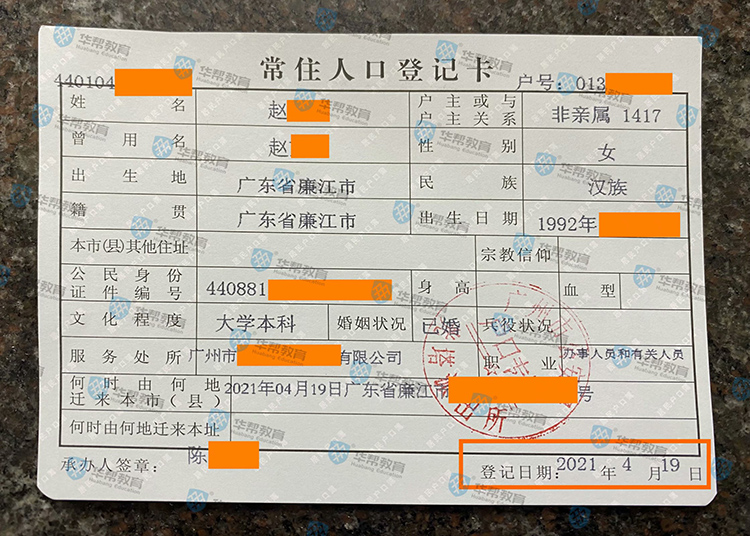 常住人口登记卡
440104
户号: 013
姓名 赵 户主或与户主关系 非亲属 1417
曾用名 赵 性别 女
出生地 广东省廉江市 民族 汉族
籍贯 广东省廉江市 出生日期 1992年
本市(县)其他住址 宗教信仰
公民身份证件编号 440881 身高 血型
文化程度 大学本科 婚姻状况 已婚 兵役状况
服务处所 广州市 有限公司 职业 办事人员和有关人员
何时由何地迁来本市(县) 2021年04月19日广东省廉江市 号
何时由何地迁来本址
承办人签章: 陈 登记日期: 2021 年 4 月 19 日
华帮教育
Huabang Education